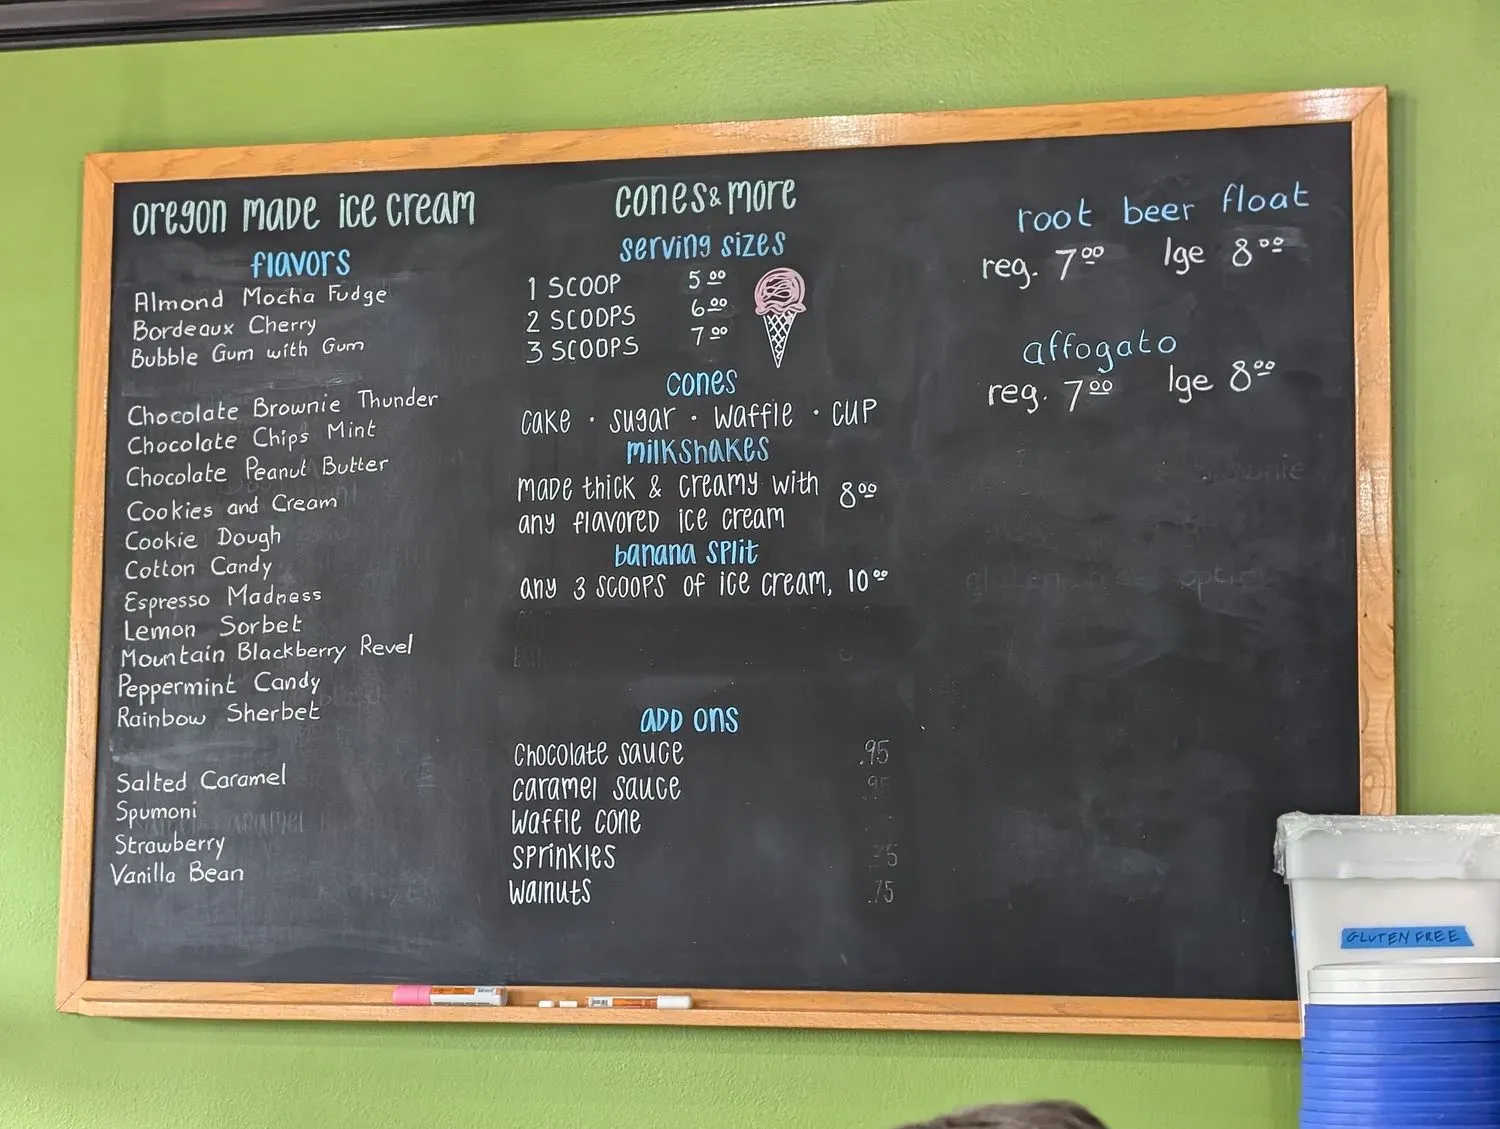 oregon made ice cream
flavors
Almond Mocha Fudge
Bordeaux Cherry
Bubble Gum with Gum
Chocolate Brownie Thunder
Chocolate Chips Mint
Chocolate Peanut Butter
Cookies and Cream
Cookie Dough
Cotton Candy
Espresso Madness
Lemon Sorbet
Mountain Blackberry Revel
Peppermint Candy
Rainbow Sherbet
Salted Caramel
Spumoni
Strawberry
Vanilla Bean
cones & more
serving sizes
1 SCOOP 5.00
2 SCOOPS 6.00
3 SCOOPS 7.00
cones
cake · sugar · waffle · cup
milkshakes
made thick & creamy with 8.00
any flavored ice cream
banana split
any 3 scoops of ice cream, 10.00
add ons
chocolate sauce .95
caramel sauce .95
waffle cone
sprinkles
walnuts .75
root beer float
reg. 7.00 lge 8.00
affogato
reg. 7.00 lge 8.00
gluten free option
GLUTEN FREE